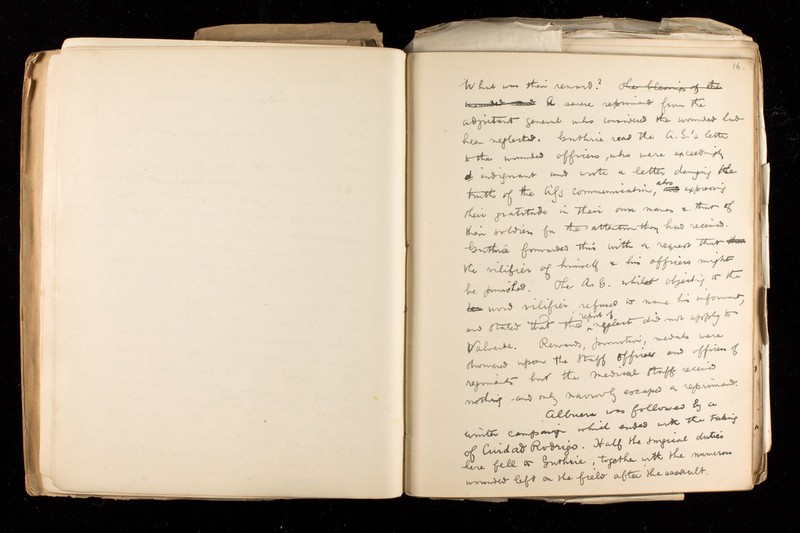 16.
What was their reward? The blessings of the
wounded and A severe reprimand from the
adjutant general who considered the wounded had
been neglected. Guthrie read the A.G.'s letter
to the wounded officers, who were exceedingly
indignant and wrote a letter denying the
truth of the A.G's communication, also and expressing
their gratitude in their own names & that of
their soldiers for the attention they had received.
Guthrie forwarded this with a request that
the vilifier of himself & his officers might
be punished. The A.G. whilst objecting to the
word vilifier refused to name his informant,
and stated that the report of neglect did not apply to
Valverde. Rewards, promotion, medals were
showered upon the Staff Officers and officers of
regiments but the medical staff received
nothing - and only narrowly escaped a reprimand.
Albuera was followed by a
winter campaign which ended with the taking
of Ciudad Rodrigo. Half the surgical duties
here fell to Guthrie, together with the numerous
wounded left on the field after the assault.